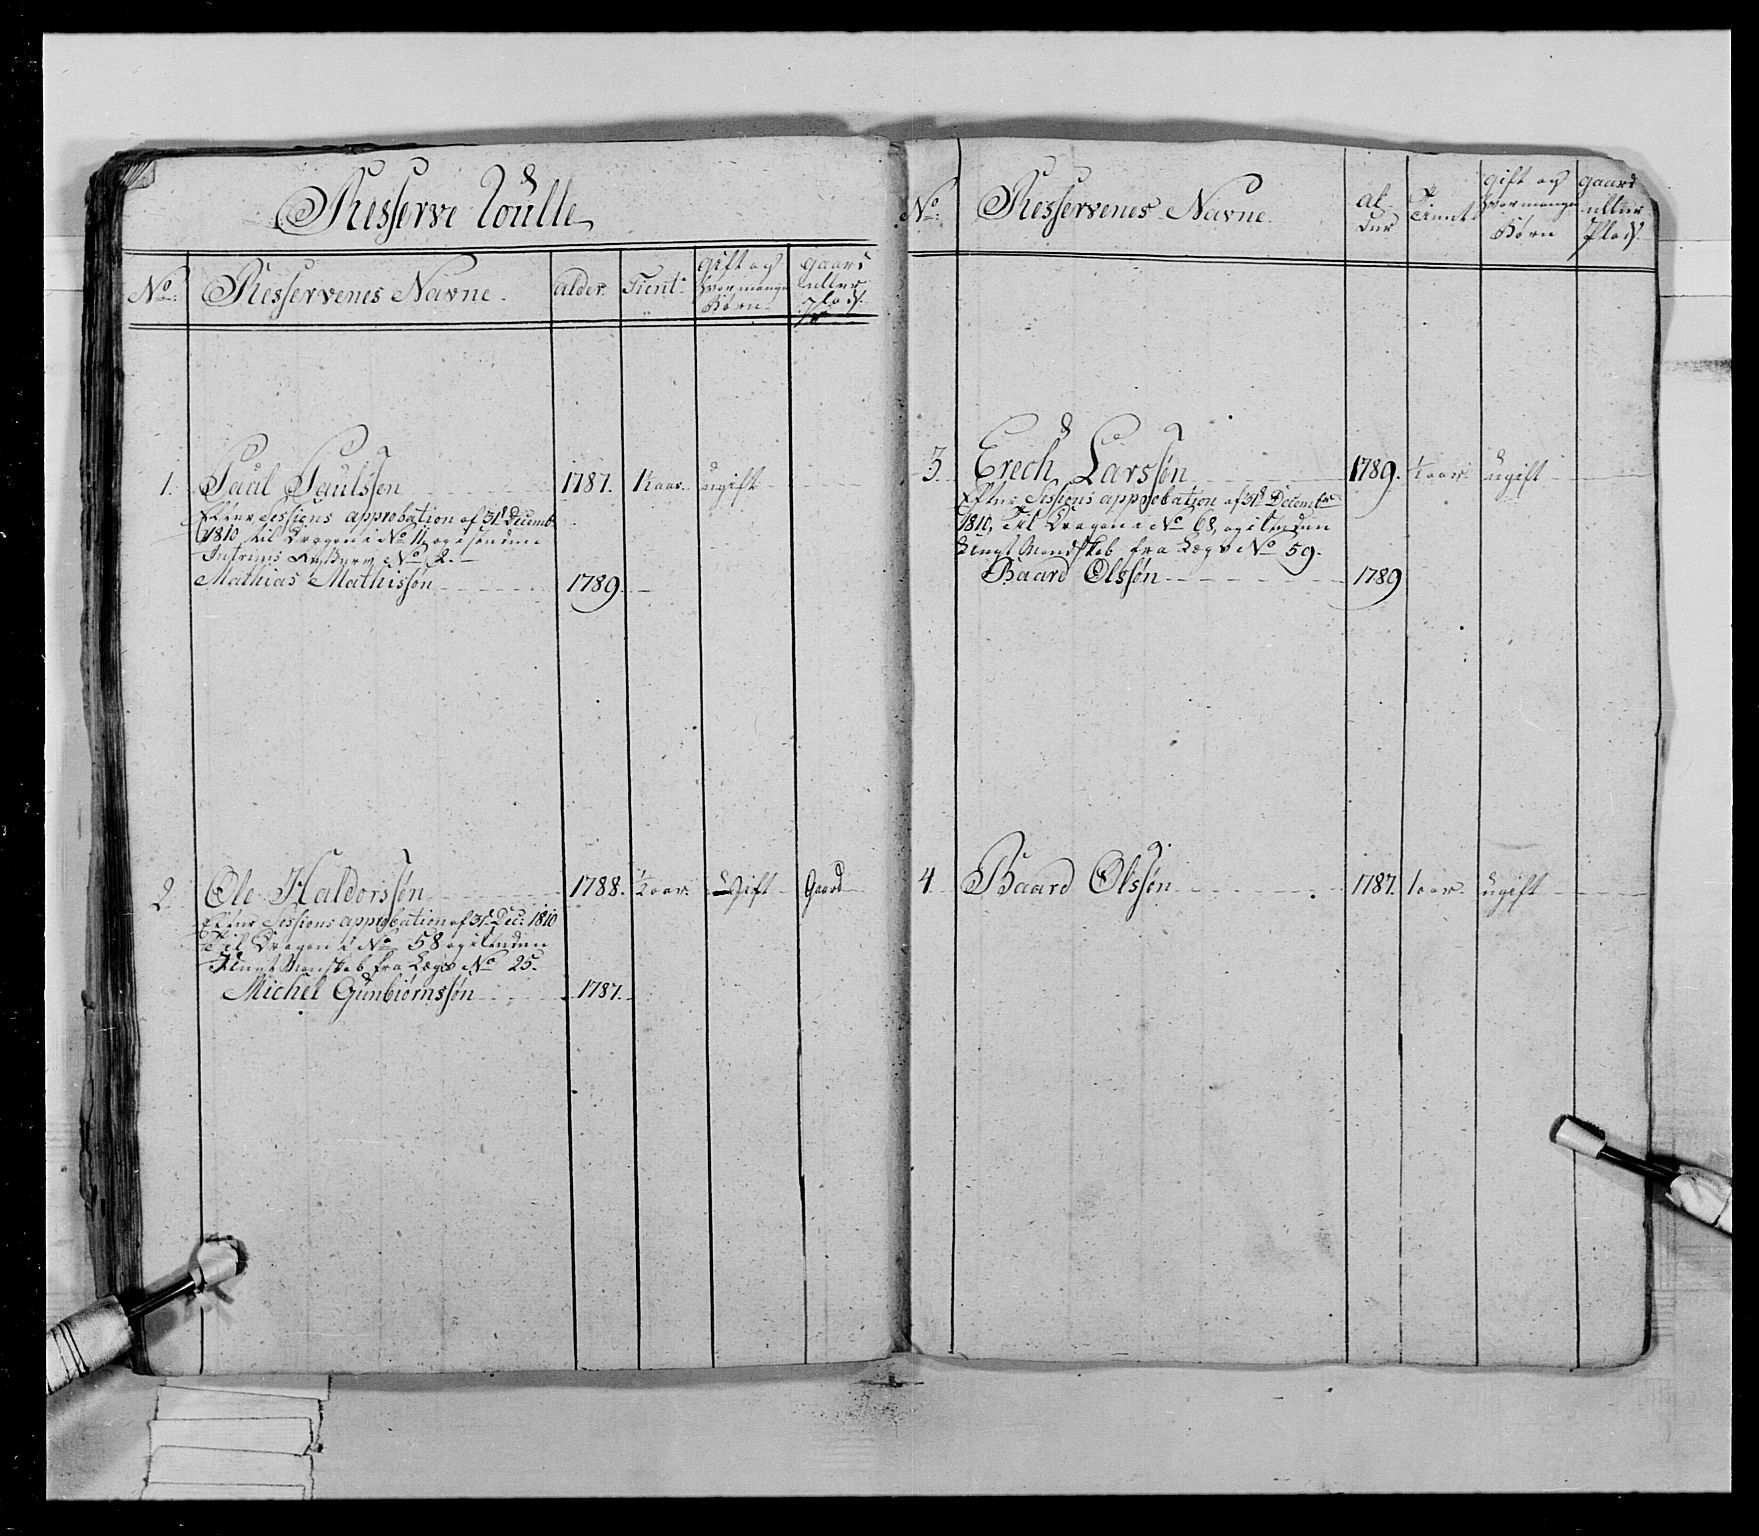 Resserve Roulle
No: Resservenes Navne. alder. Tient. gift og hvor mange Børn gaard eller Plads.
1. Paul Paulssøn 1787. 1/2 aar. ugift
Efter Sessions approbation af 31te Decemb:
1810 til Dragon i No 11 og i henden
No 2.
Mathias Mathissøn 1789
2 Ole Haldorssøn 1788. 1/2 aar. Gift Gaard
Efter Sessions approbation af 31te Dec: 1810
Til Dragon i No 58 og istenden
Mandskab fra Lægd No 25.
Michel Gunbiørnssøn 1787.
No: Resservenes Navne. al-der Tient gift og hvor mange Børn gaard eller Plads.
3 Erech Larssøn 1789. 1/2 aar. ugift
Efter Sessions approbation af 31te Decembr
1810, Til Dragon i No 68, og istenden
Mandskab fra Lægd No 59.
Baard Olssøn 1789
4 Baard Olssøn 1787. 1 aar. ugift